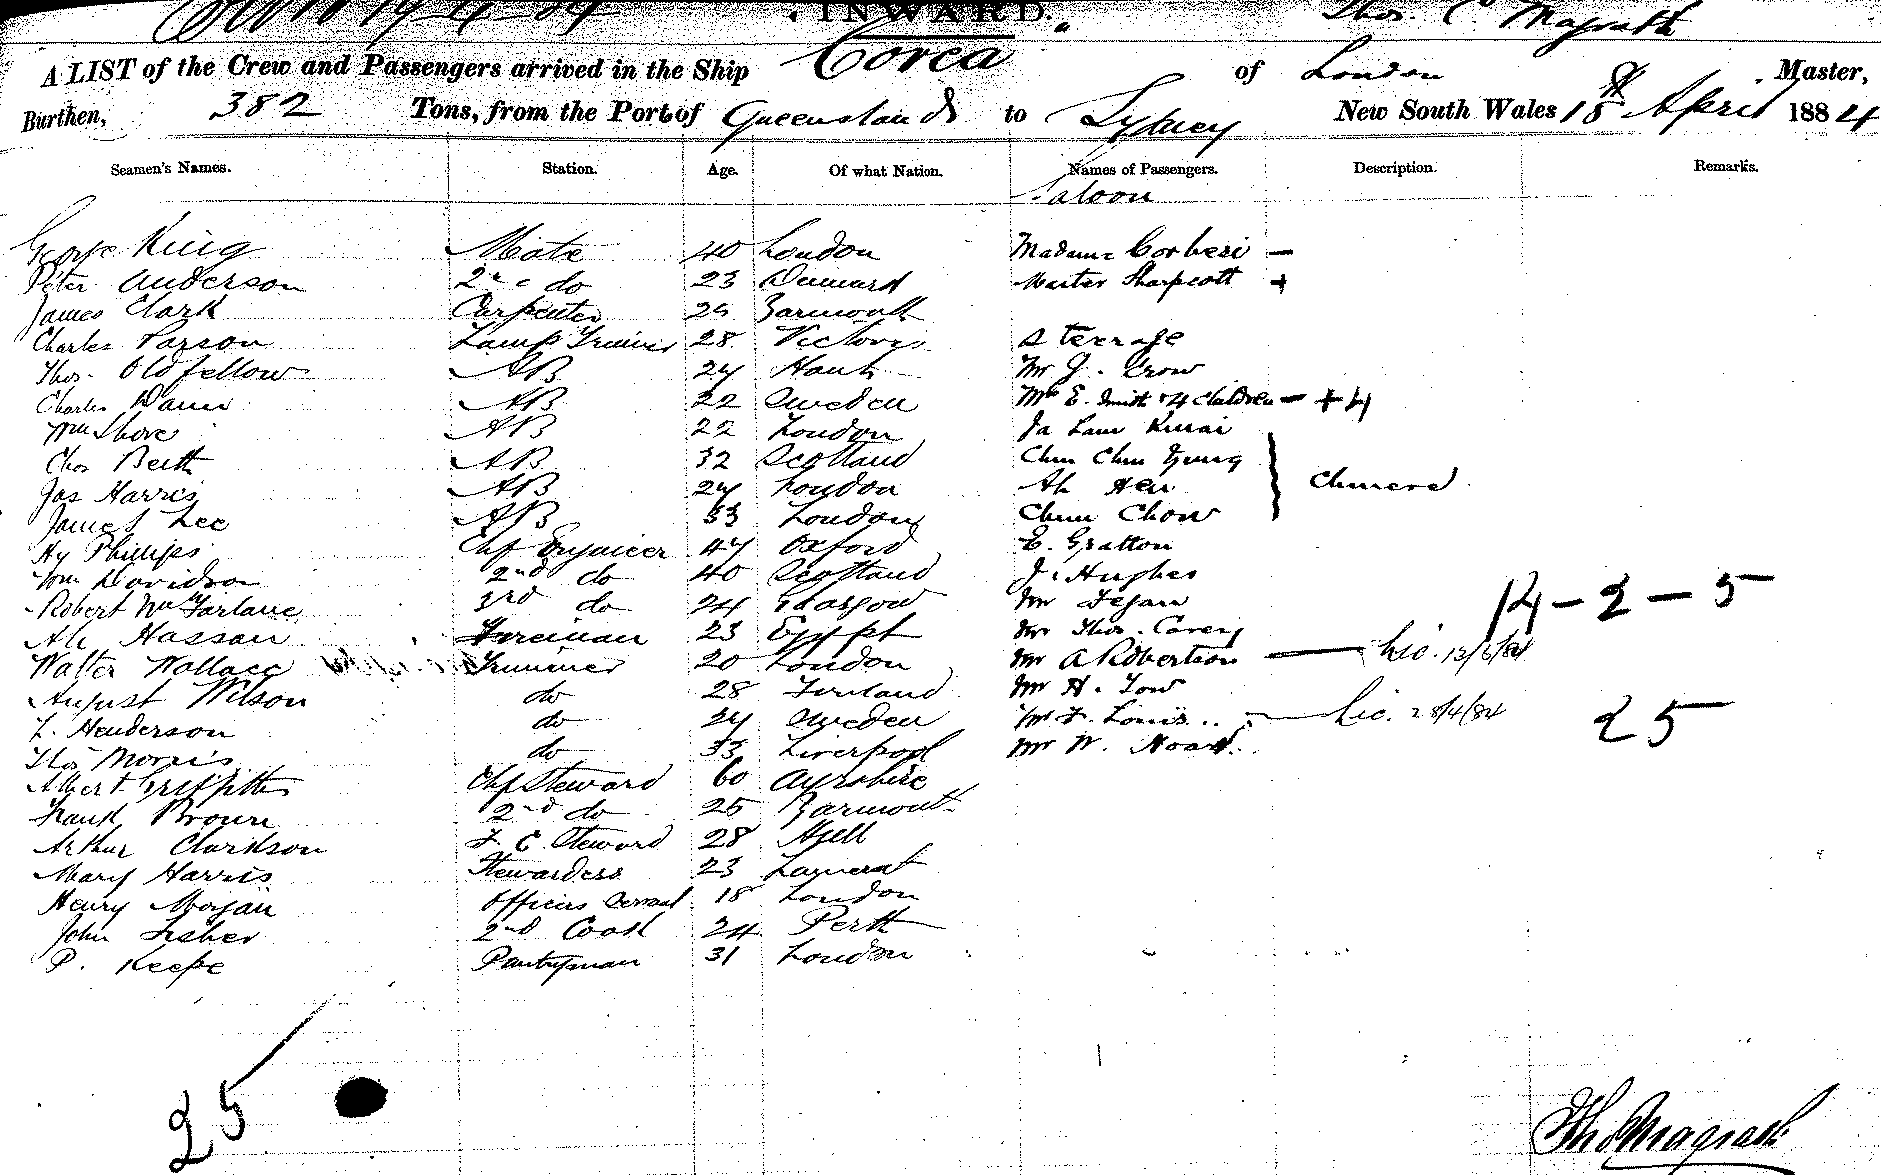 INWARD.
Thos. C. Magrath
A LIST of the Crew and Passengers arrived in the Ship Corea of London Master,
Burthen, 382 Tons, from the Port of Queensland to Sydney New South Wales 18th April 1884
Seamen's Names. Station. Age. Of what Nation. Names of Passengers. Description. Remarks.
Saloon
George King Mate 40 London Madame Corberi –
Peter Anderson 2nd do 23 Denmark Master Sharpcott +
James Clark Carpenter 25 Yarmouth
Charles Parson Lamp Trimmer 28 Victoria Steerage
Thos. Oldfellow AB 24 Hants Mr J. Crow
Charles AB 22 Sweden Mrs E. Smith & 4 children – +4
Wm Shore AB 22 London
Chas AB 32 Scotland Chun Chun
Jas Harris AB 24 London Ah Hen } Chinese
James Lee AB 33 London Chun Chow
Hy Phillips Chf Engineer 47 Oxford E. Gratton
Wm Davidson 2nd do 40 Scotland J. Hughes
Robert McFarlane 3rd do 24 Glasgow Mr Fegan 14 – 2 – 5
Ali Hassan Fireman 23 Egypt Mr Thos. Carey
Walter Wallace Trimmer 20 London Mr A Robertson — Lic. 12/6/84
August Wilson do 28 Finland Mr H. Tow
L. Henderson do 24 Sweden Mr F. Louis — Lic. 28/4/84 25
Thos Morris do 33 Liverpool Mr W. Hoad
Albert Griffiths Chf Steward 60 Ayrshire
Frank Brown 2nd do 25 Yarmouth
Arthur Clarkson F. C. Steward 28
Mary Harris Stewardess 23
Henry Morgan Officers Servant 18 London
John Fisher 2nd Cook 24 Perth
P. Keefe Pantryman 31 London
25
Thos C Magrath